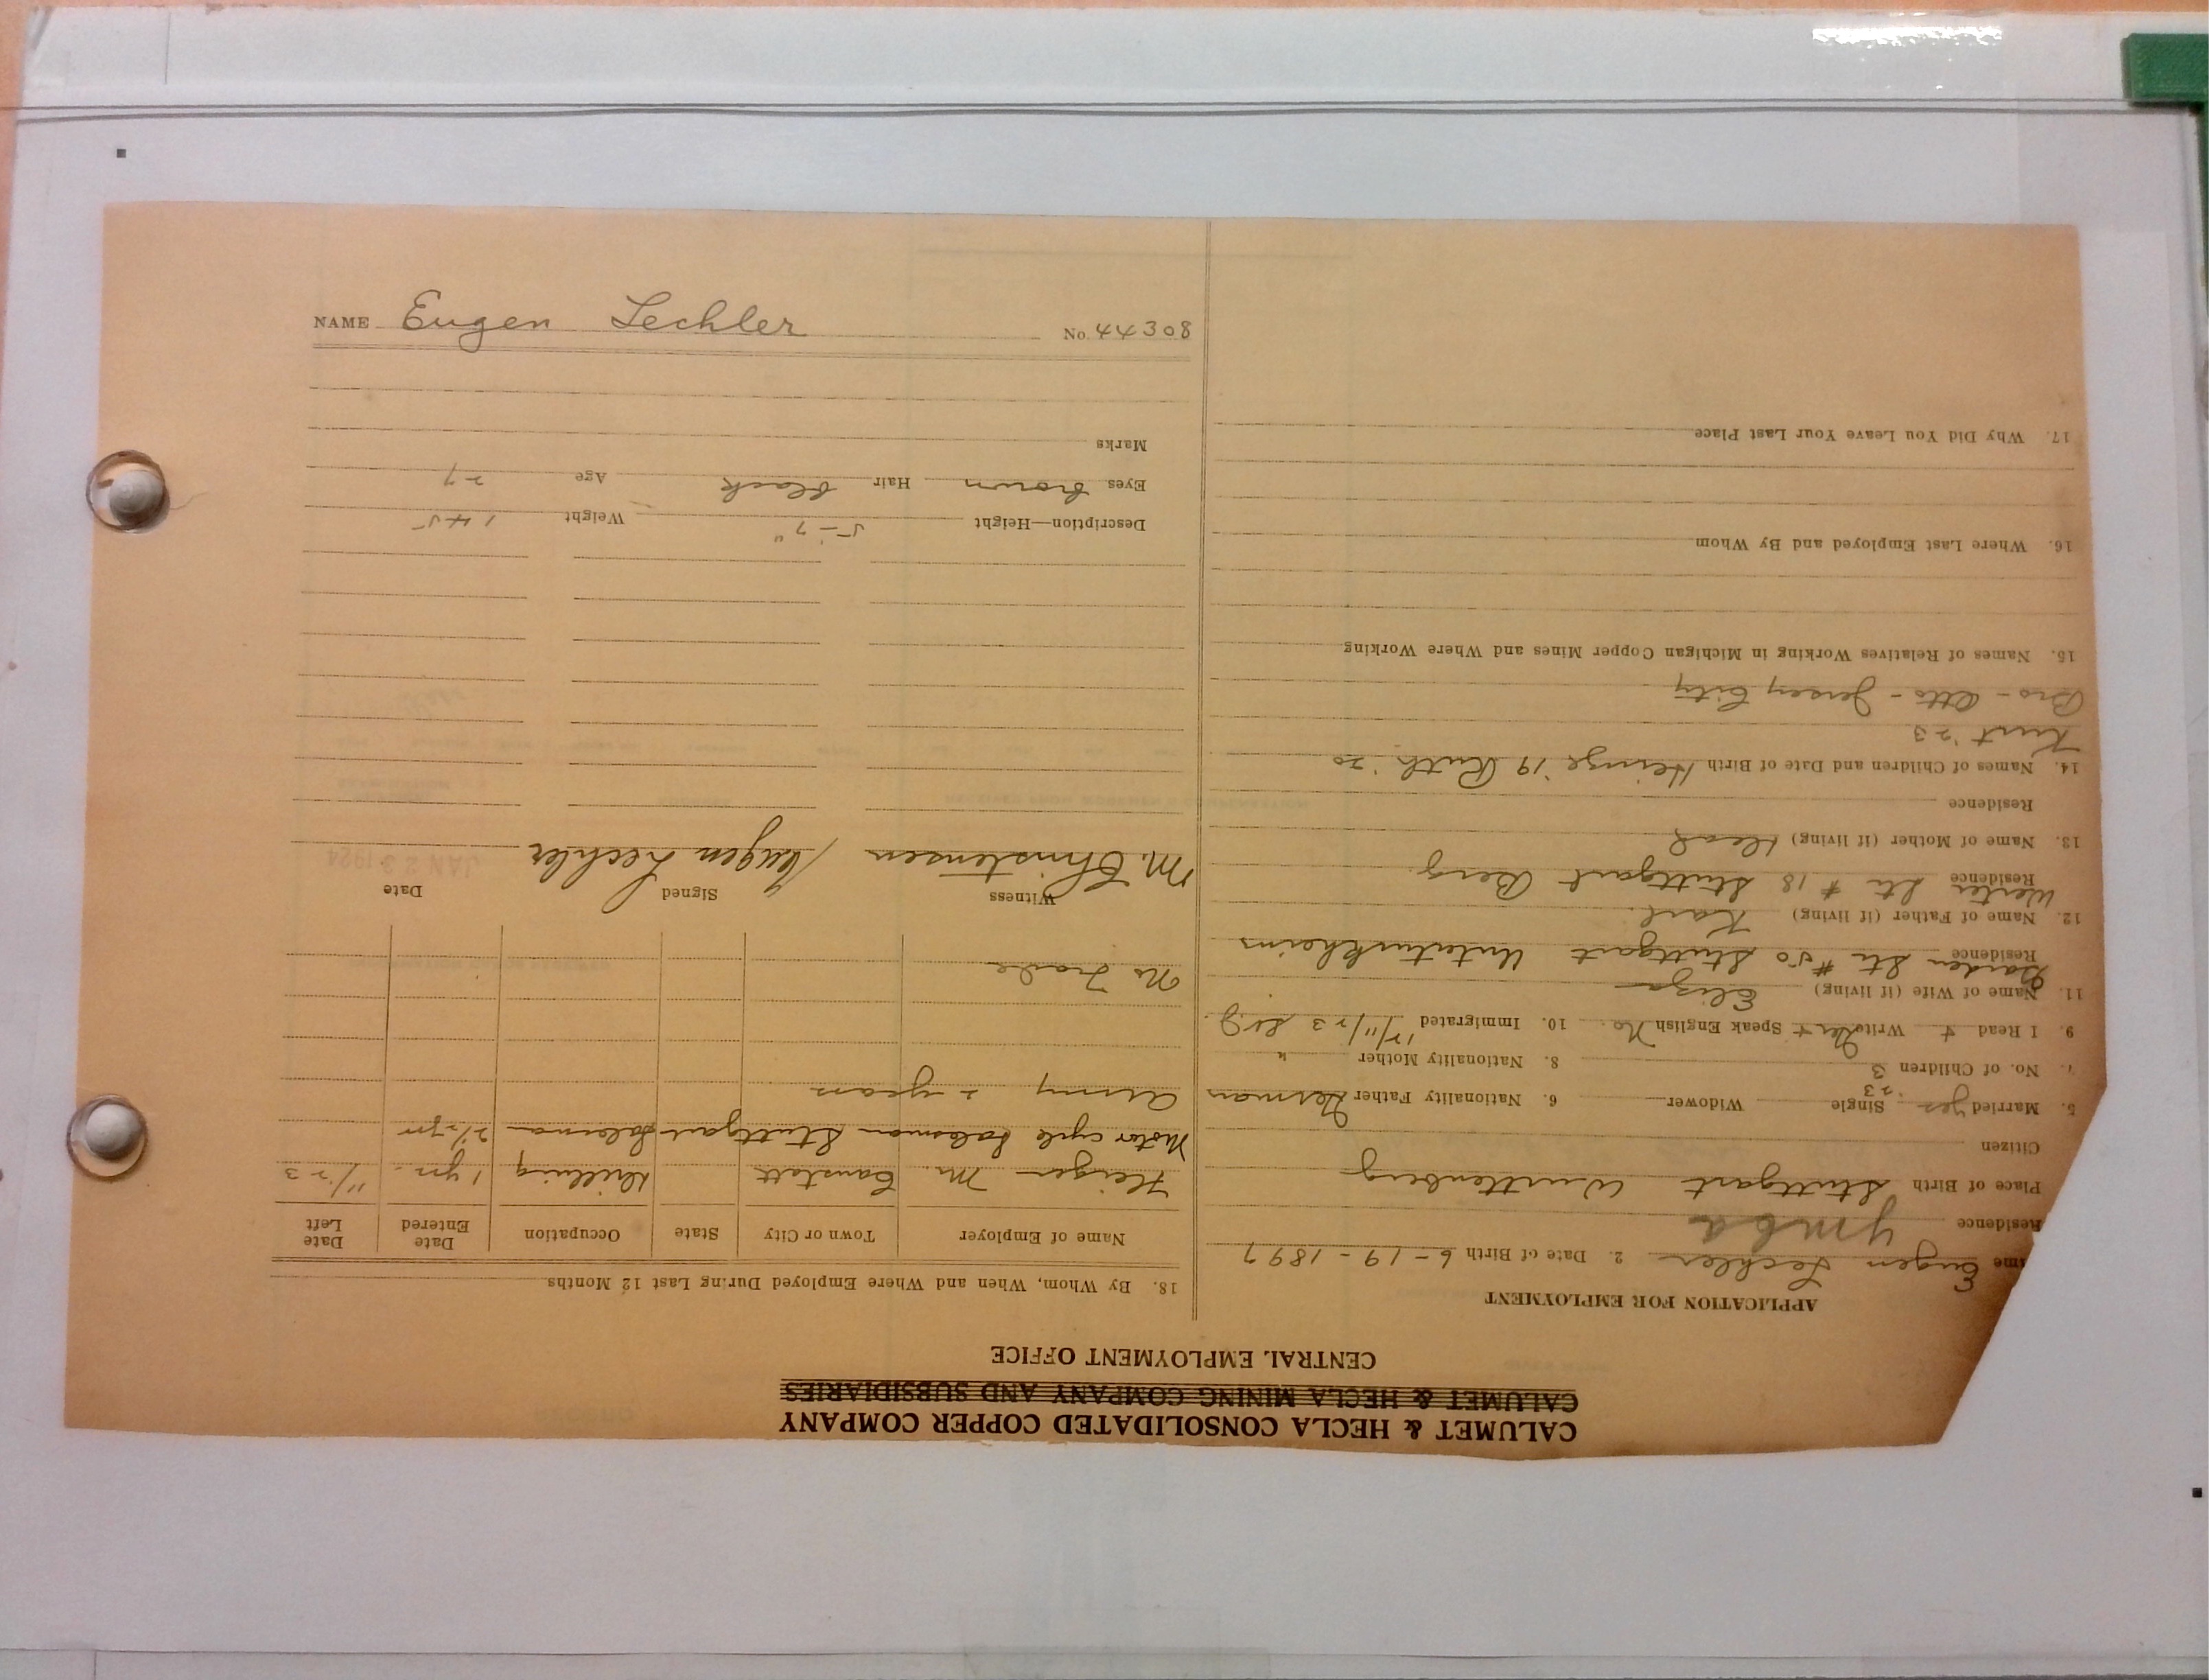 NAME Eugen Lechler No. 44308
CALUMET & HECLA CONSOLIDATED COPPER COMPANY
CALUMET & HECLA MINING COMPANY AND SUBSIDIARIES
CENTRAL EMPLOYMENT OFFICE
APPLICATION FOR EMPLOYMENT
me Eugen Lechler 2. Date of Birth 6-19-1897
Residence Ymca
Place of Birth Stuttgart Wurttenberg
Citizen
5. Married yes 23 Single Widower 6. Nationality Father German
7. No. of Children 3 8. Nationality Mother "
9. I Read + Write Ger + Speak English No 10. Immigrated 12/11/23
11. Name of Wife (if living) Eliza
Residence Garden Str #50 Stuttgart Unterturkheim
12. Name of Father (if living) Karl
Residence Str #18 Stuttgart Berg
13. Name of Mother (if living) dead
Residence
14. Names of Children and Date of Birth Heinze '19 Ruth '20
Kurt '23
Bro - Otto - Jersey City
15. Names of Relatives Working in Michigan Copper Mines and Where Working
16. Where Last Employed and By Whom
17. Why Did You Leave Your Last Place
18. By Whom, When and Where Employed During Last 12 Months
Name of Employer Town or City State Occupation Date Entered Date Left
M. Canstatt 1 yr. 11/23
Motor cycle salesman Stuttgart 2 1/2 yr
Army 2 years
No Trade
Witness Signed Date
M. Christensen Eugen Lechler JAN 23 1924
Description—Height 5-7" Weight 145
Eyes brown Hair black Age 27
Marks